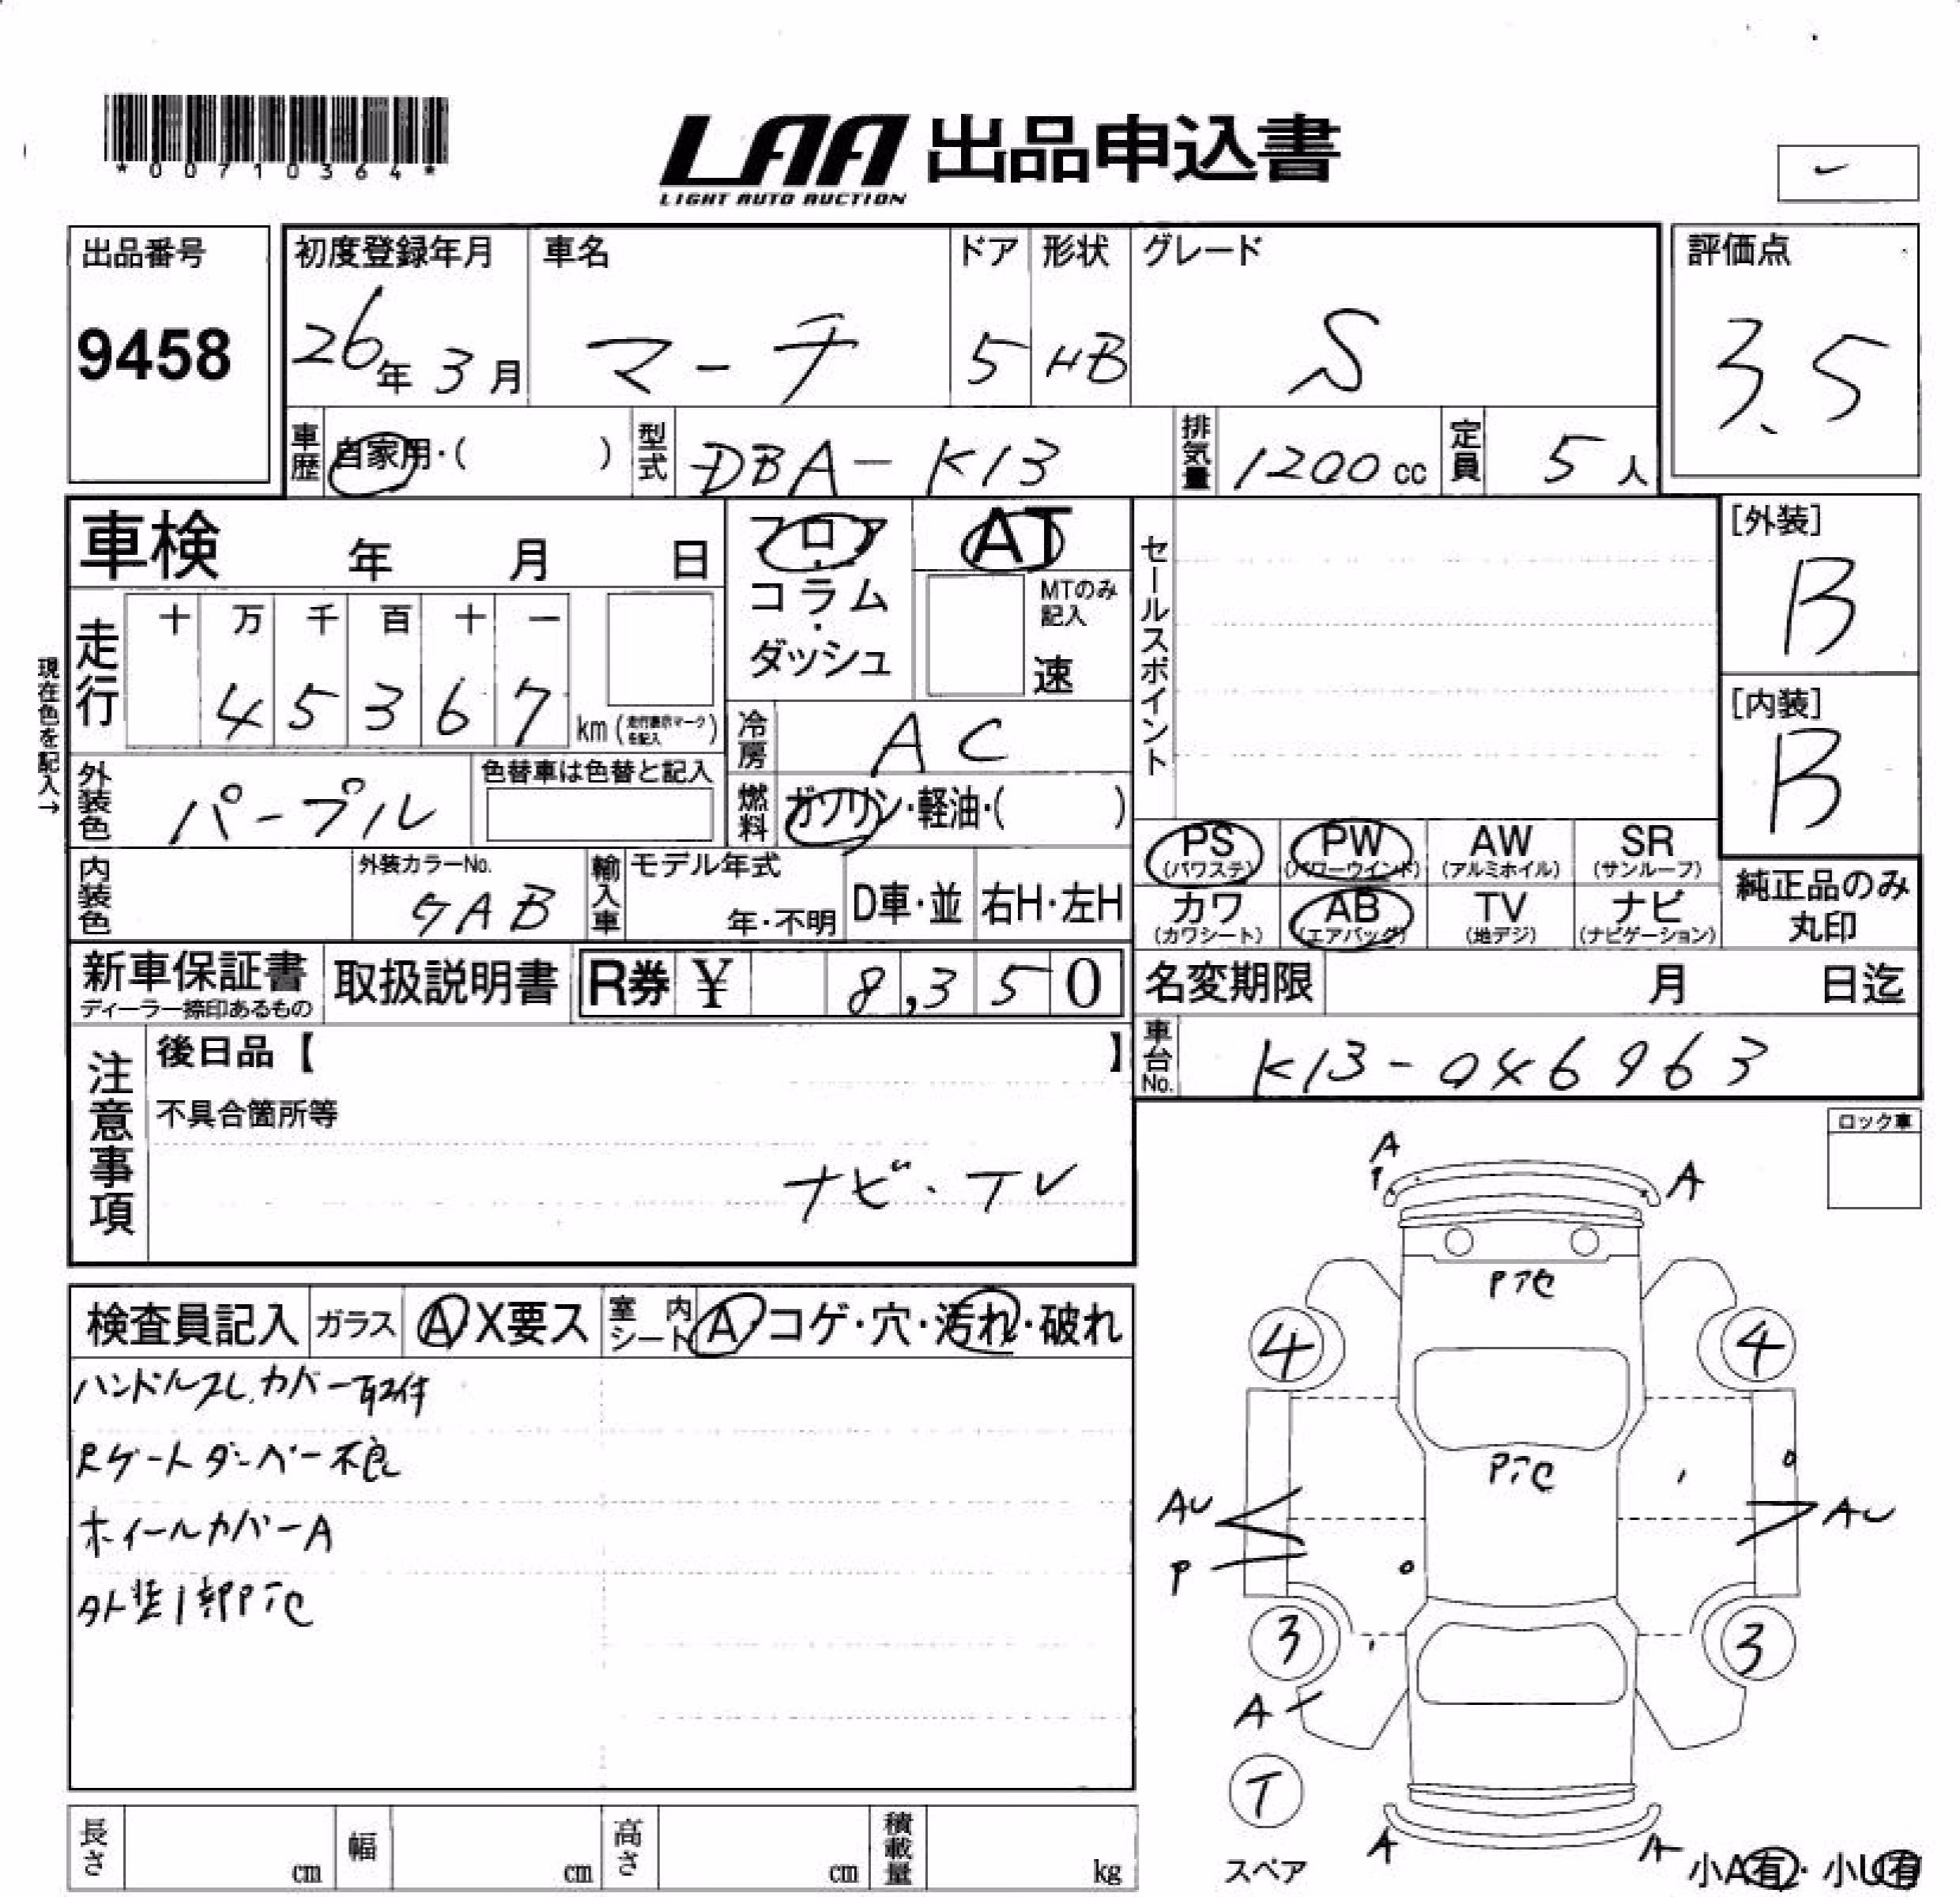 *00710364*
LAA 出品申込書
LIGHT AUTO AUCTION
出品番号
9458
初度登録年月
26年 3月
車名
マーチ
ドア
5
形状
HB
グレード
S
評価点
3.5
車歴
自家用・( )
型式
DBA-K13
排気量
1200 cc
定員
5 人
車検 年 月 日
フロア
・
コラム
・
ダッシュ
AT
MTのみ
記入
速
セールスポイント
[外装]
B
[内装]
B
現在色を記入→
走行
十 万 千 百 十 一
4 5 3 6 7 km (走行表示マークを記入)
冷房
AC
外装色
パープル
色替車は色替と記入
燃料
ガソリン・軽油・( )
PS (パワステ)
PW (パワーウインド)
AW (アルミホイル)
SR (サンルーフ)
カワ (カワシート)
AB (エアバッグ)
TV (地デジ)
ナビ (ナビゲーション)
純正品のみ
丸印
内装色
外装カラーNo.
輸入車
モデル年式
年・不明
D車・並
右H・左H
新車保証書
ディーラー捺印あるもの
取扱説明書
R券 ¥ 8,350
名変期限 月 日迄
車台No.
注意事項
後日品【 】
不具合箇所等
ナビ・TV
ロック車
検査員記入
ガラス
A X要ス
室内
シート
A・コゲ・穴・汚れ・破れ
ハンドルスレ.カバー取付
Rゲートダンパー不良
ホイールカバーA
外装1部Pテc
A
P
A
Pテc
4
4
Pテc
AU
P
AU
3
3
A
T
スペア
A
A
小A有・小U有
長さ cm
幅 cm
高さ cm
積載量 kg